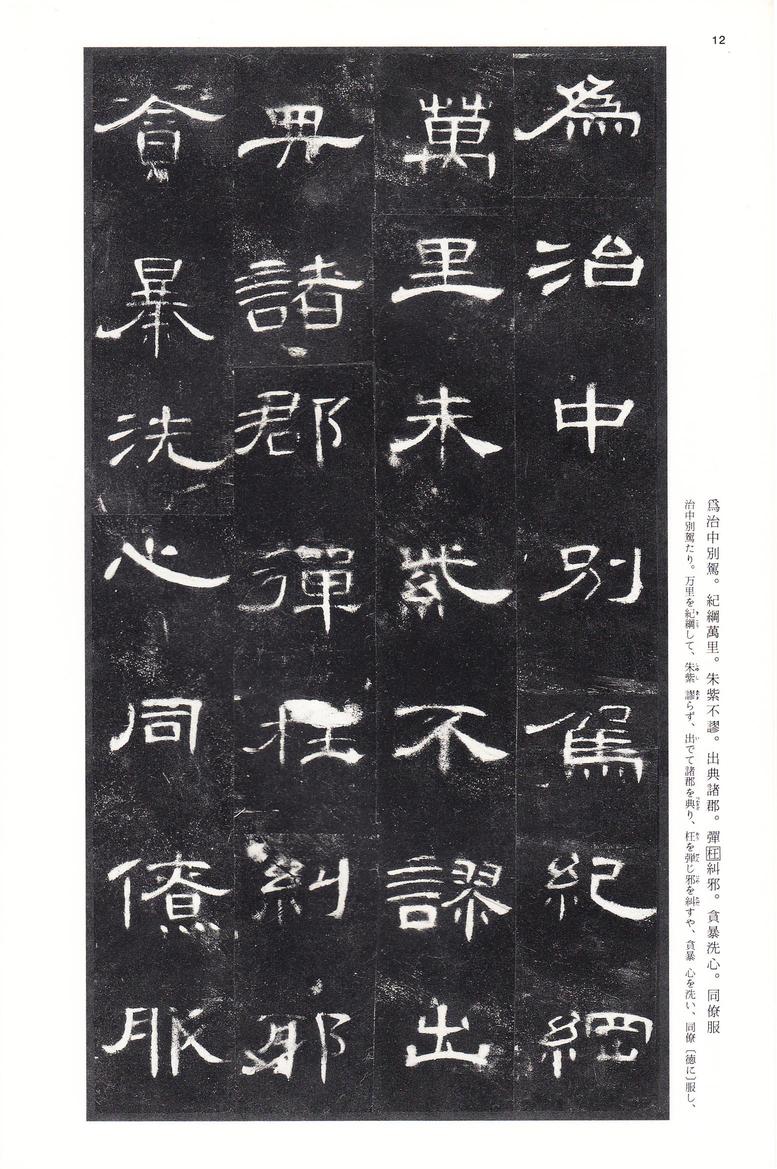 12
爲治中別駕紀綱
萬里朱紫不謬出
典諸郡彈枉糾邪
貪暴洗心同僚服
爲治中別駕。紀綱萬里。朱紫不謬。出典諸郡。彈枉糾邪。貪暴洗心。同僚服
治中別駕たり。万里を紀綱して、朱紫謬らず、出でて諸郡を典り、枉を弾じ邪を糾すや、貪暴 心を洗い、同僚〔徳に〕服し、